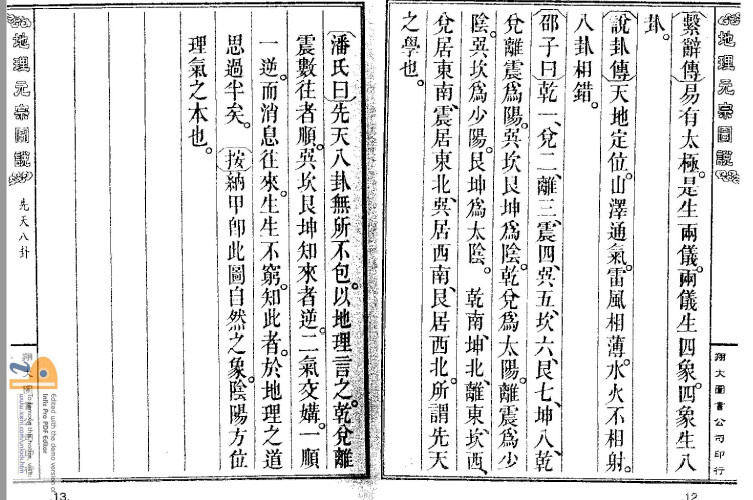 地理元宗圖說
翔大圖書公司印行
繫辭傳易有太極。是生兩儀。兩儀生四象。四象生八
卦。
說卦傳天地定位。山澤通氣。雷風相薄。水火不相射。
八卦相錯。
邵子曰乾一、兌二、離三、震四、巽五、坎六、艮七、坤八、乾
兌離震爲陽。巽坎艮坤爲陰。乾兌爲太陽。離震爲少
陰。巽坎爲少陽。艮坤爲太陰。 乾南、坤北、離東、坎西、
兌居東南、震居東北、巽居西南、艮居西北。所謂先天
之學也。
12
潘氏曰先天八卦無所不包。以地理言之。乾兌離
震數往者順。巽坎艮坤知來者逆。二氣交媾。一順
一逆。而消息往來。生生不窮。知此者。於地理之道
思過半矣。 按納甲卽此圖自然之象。陰陽方位
理氣之本也。
地理元宗圖說
先天八卦
翔大
13.
Edited with the demo version of
Infix Pro PDF Editor
To remove this notice, visit:
www.iceni.com/unlock.htm